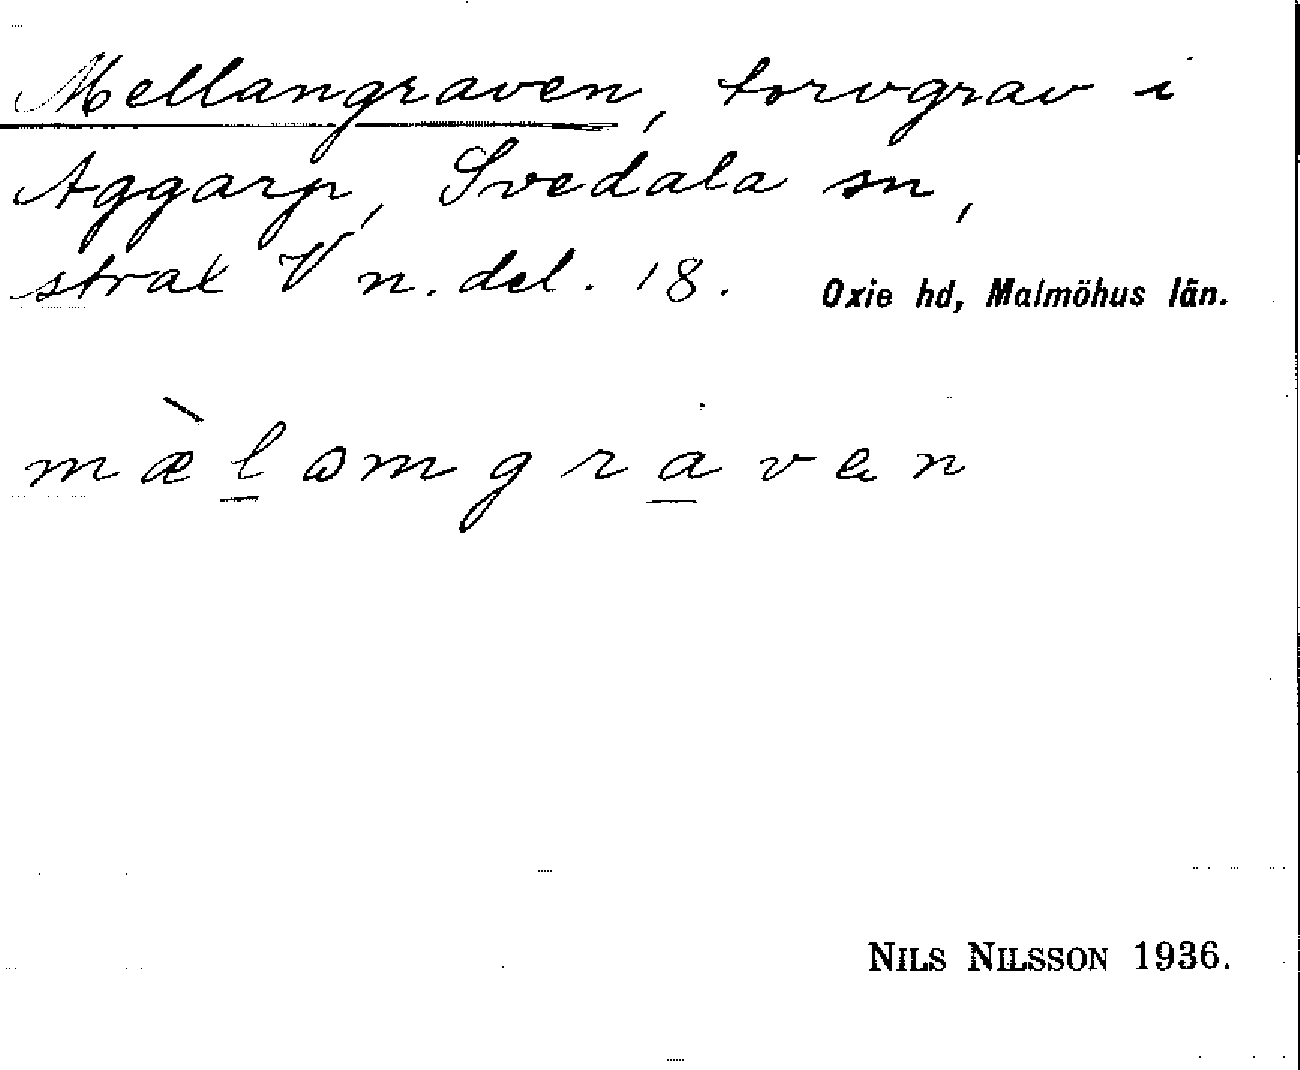 Mellangraven, torvgrav i
Aggarp, Svedala sn,
strax V n. del. 18. Oxie hd, Malmöhus län.
mæ̀l̲ɷmgra̲ven
NILS NILSSON 1936.